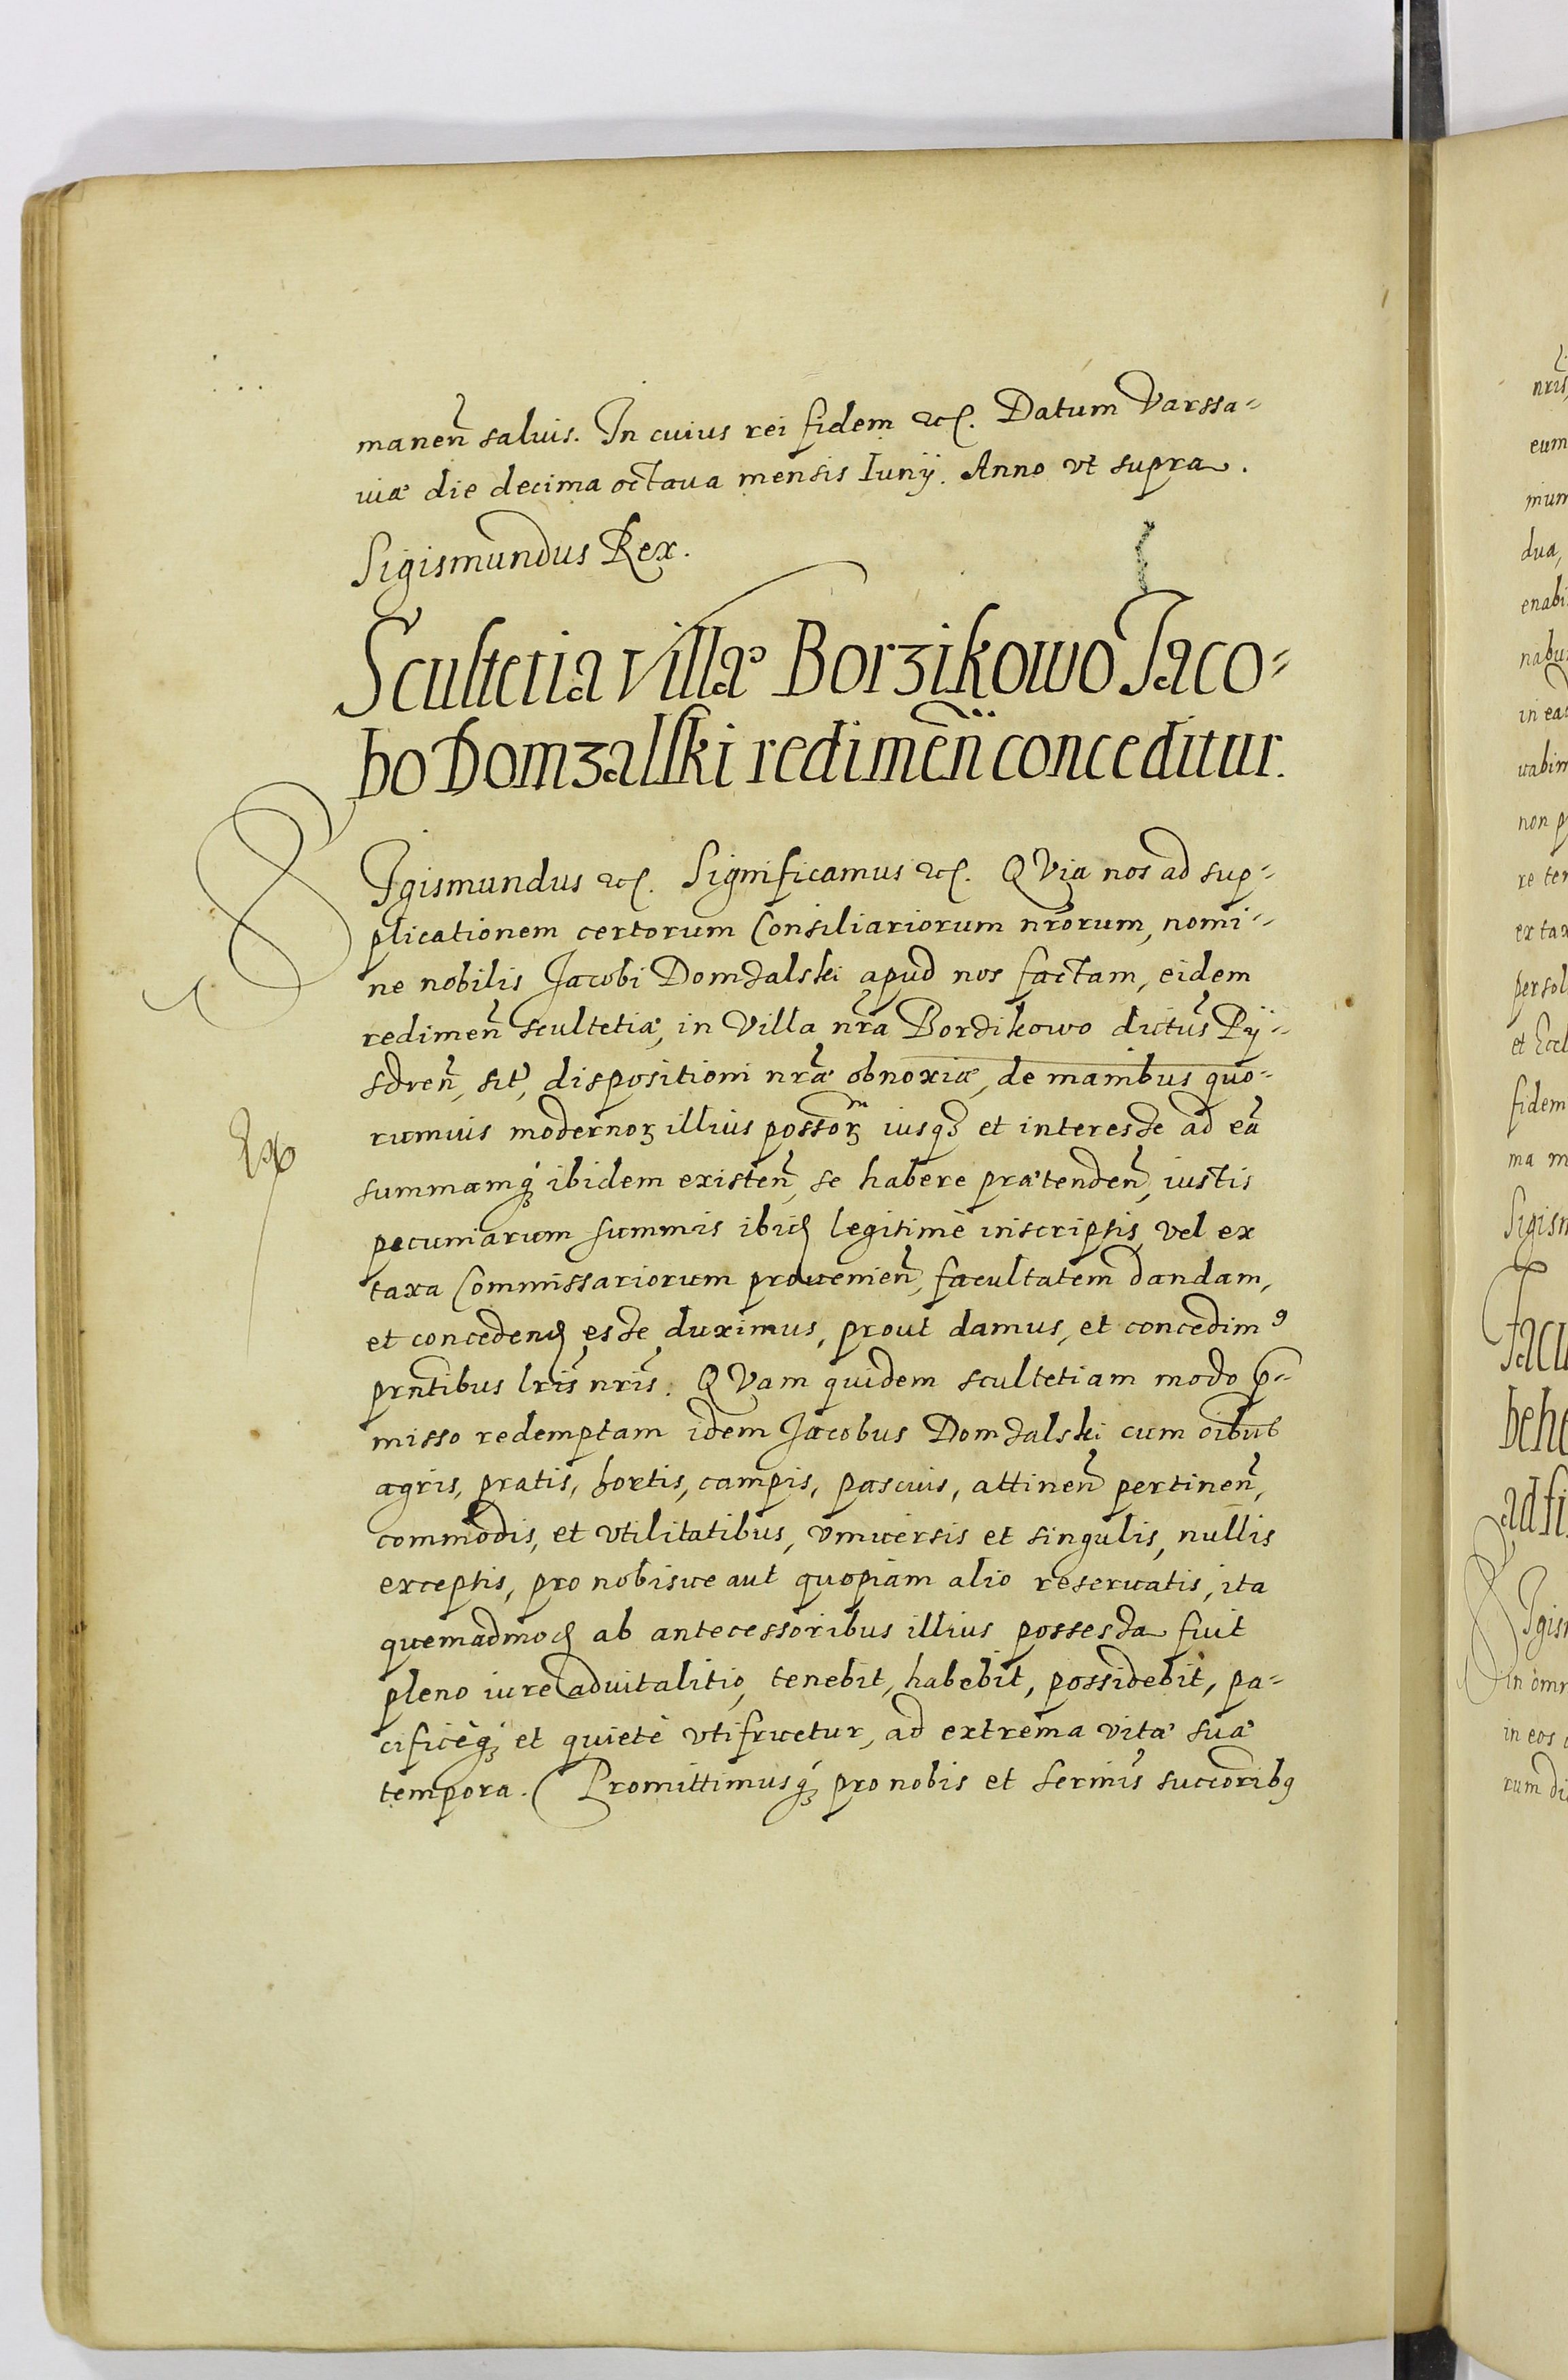 manen̄ saluis. In cuius rei fidem etc. Datum Varssa-
uiæ die decima octaua mensis Iunij. Anno vt supra.
Sigismundus Rex.
Scultetia villæ Borzikowo Jaco-
bo Domzalski redimen̄ conceditur.
SIgismundus etc. Significamus etc. QVia nos ad sup-
plicationem certorum Consiliariorum nr̄orum, nomi-
ne nobilis Jacobi Domzalski apud nos factam, eidem
redimen̄ scultetiæ, in Villa nr̄a Borzikowo dictus Pij-
sdren̄, sit̄, dispositioni nr̄æ obnoxiæ, de manibus quo-
rumuis modernoꝝ illius possoꝝ iusqꝫ et interesse ad eā
Ex
summamqꝫ ibidem existen̄, se habere prætenden̄, iustis
pecuniarum summis ibid legitimè inscriptis, vel ex
taxa Commissariorum prouenien̄, facultatem dandam,
et concedend esse duximus, prout damus, et concedimꝰ
prn̄tibus lr̄is nr̄is. QVam quidem scultetiam modo p̄-
misso redemptam idem Jacobus Domzalski cum oībus
agris, pratis, hortis, campis, pascuis, attinen̄ pertinen̄,
commodis, et vtilitatibus, vniuersis et singulis, nullis
exceptis, pro nobisue aut quopiam alio reseruatis, ita
quemadmod ab antecessoribus illius possessa fuit
pleno iure aduitalitio, tenebit, habebit, possidebit, pa-
cificèqꝫ et quietè vtifruetur, ad extrema vitæ suæ
tempora. Promittimusqꝫ pro nobis et Serm̄is succoribꝰ